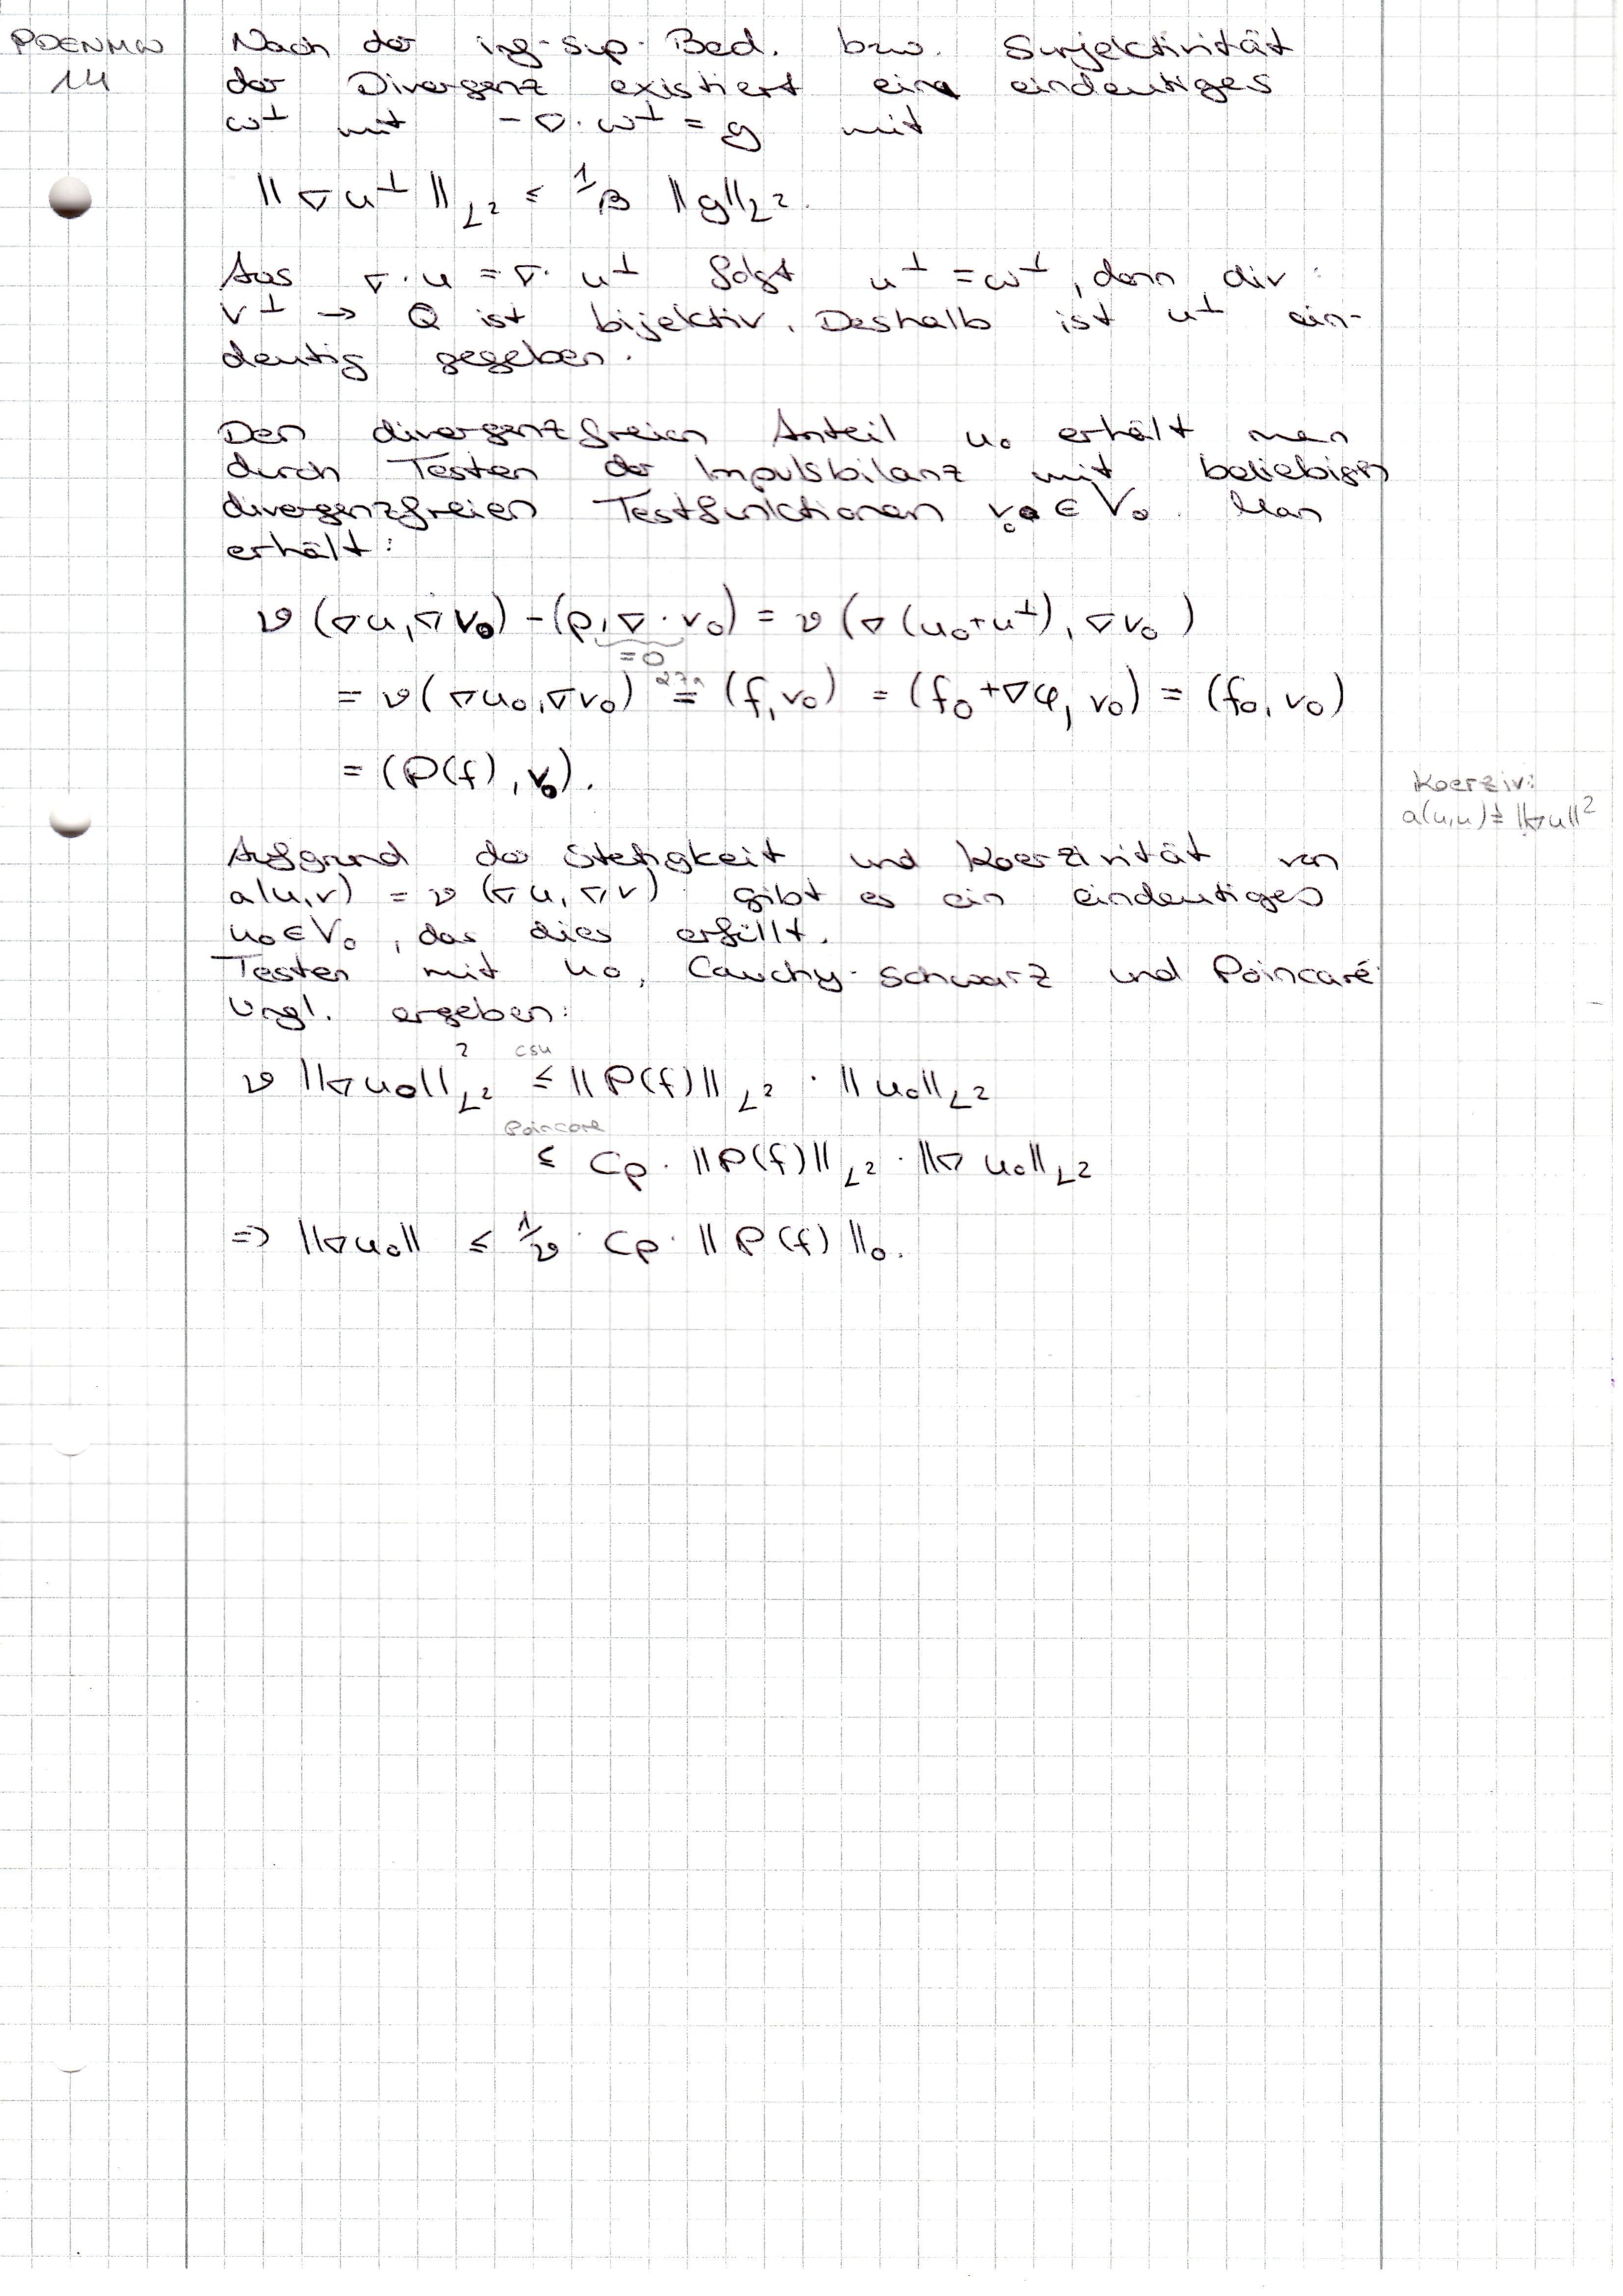 PDENMW
14
Nach der inf-sup-Bed. bzw. Surjektivität
der Divergenz existiert ein eindeutiges
ω^⊥ mit -∇·ω^⊥ = g mit
||∇u^⊥||_L² ≤ 1/β ||g||_L².
Aus ∇·u = ∇·u^⊥ folgt u^⊥ = ω^⊥, denn div:
V^⊥ → Q ist bijektiv. Deshalb ist u^⊥ ein-
deutig gegeben.
Den divergenzfreien Anteil u₀ erhält man
durch Testen der Impulsbilanz mit beliebigen
divergenzfreien Testfunktionen v₀ ∈ V₀. Man
erhält:
ν(∇u,∇v₀) - (p,∇·v₀) = ν(∇(u₀+u^⊥),∇v₀)
=0
= ν(∇u₀,∇v₀) = (f,v₀) = (f₀+∇φ, v₀) = (f₀, v₀)
= (P(f), v₀).
Koerziv:
a(u,u) ≥ ||∇u||²
Aufgrund der Stetigkeit und Koerzivität von
a(u,v) = ν(∇u,∇v) gibt es ein eindeutiges
u₀ ∈ V₀, das dies erfüllt.
Testen mit u₀, Cauchy-Schwarz und Poincaré
Ungl. ergeben:
ν ||∇u₀||²_L² ≤ ||P(f)||_L² · ||u₀||_L²
CSU
Poincare
≤ Cp · ||P(f)||_L² · ||∇u₀||_L²
⇒ ||∇u₀|| ≤ 1/ν · Cp · ||P(f)||₀.